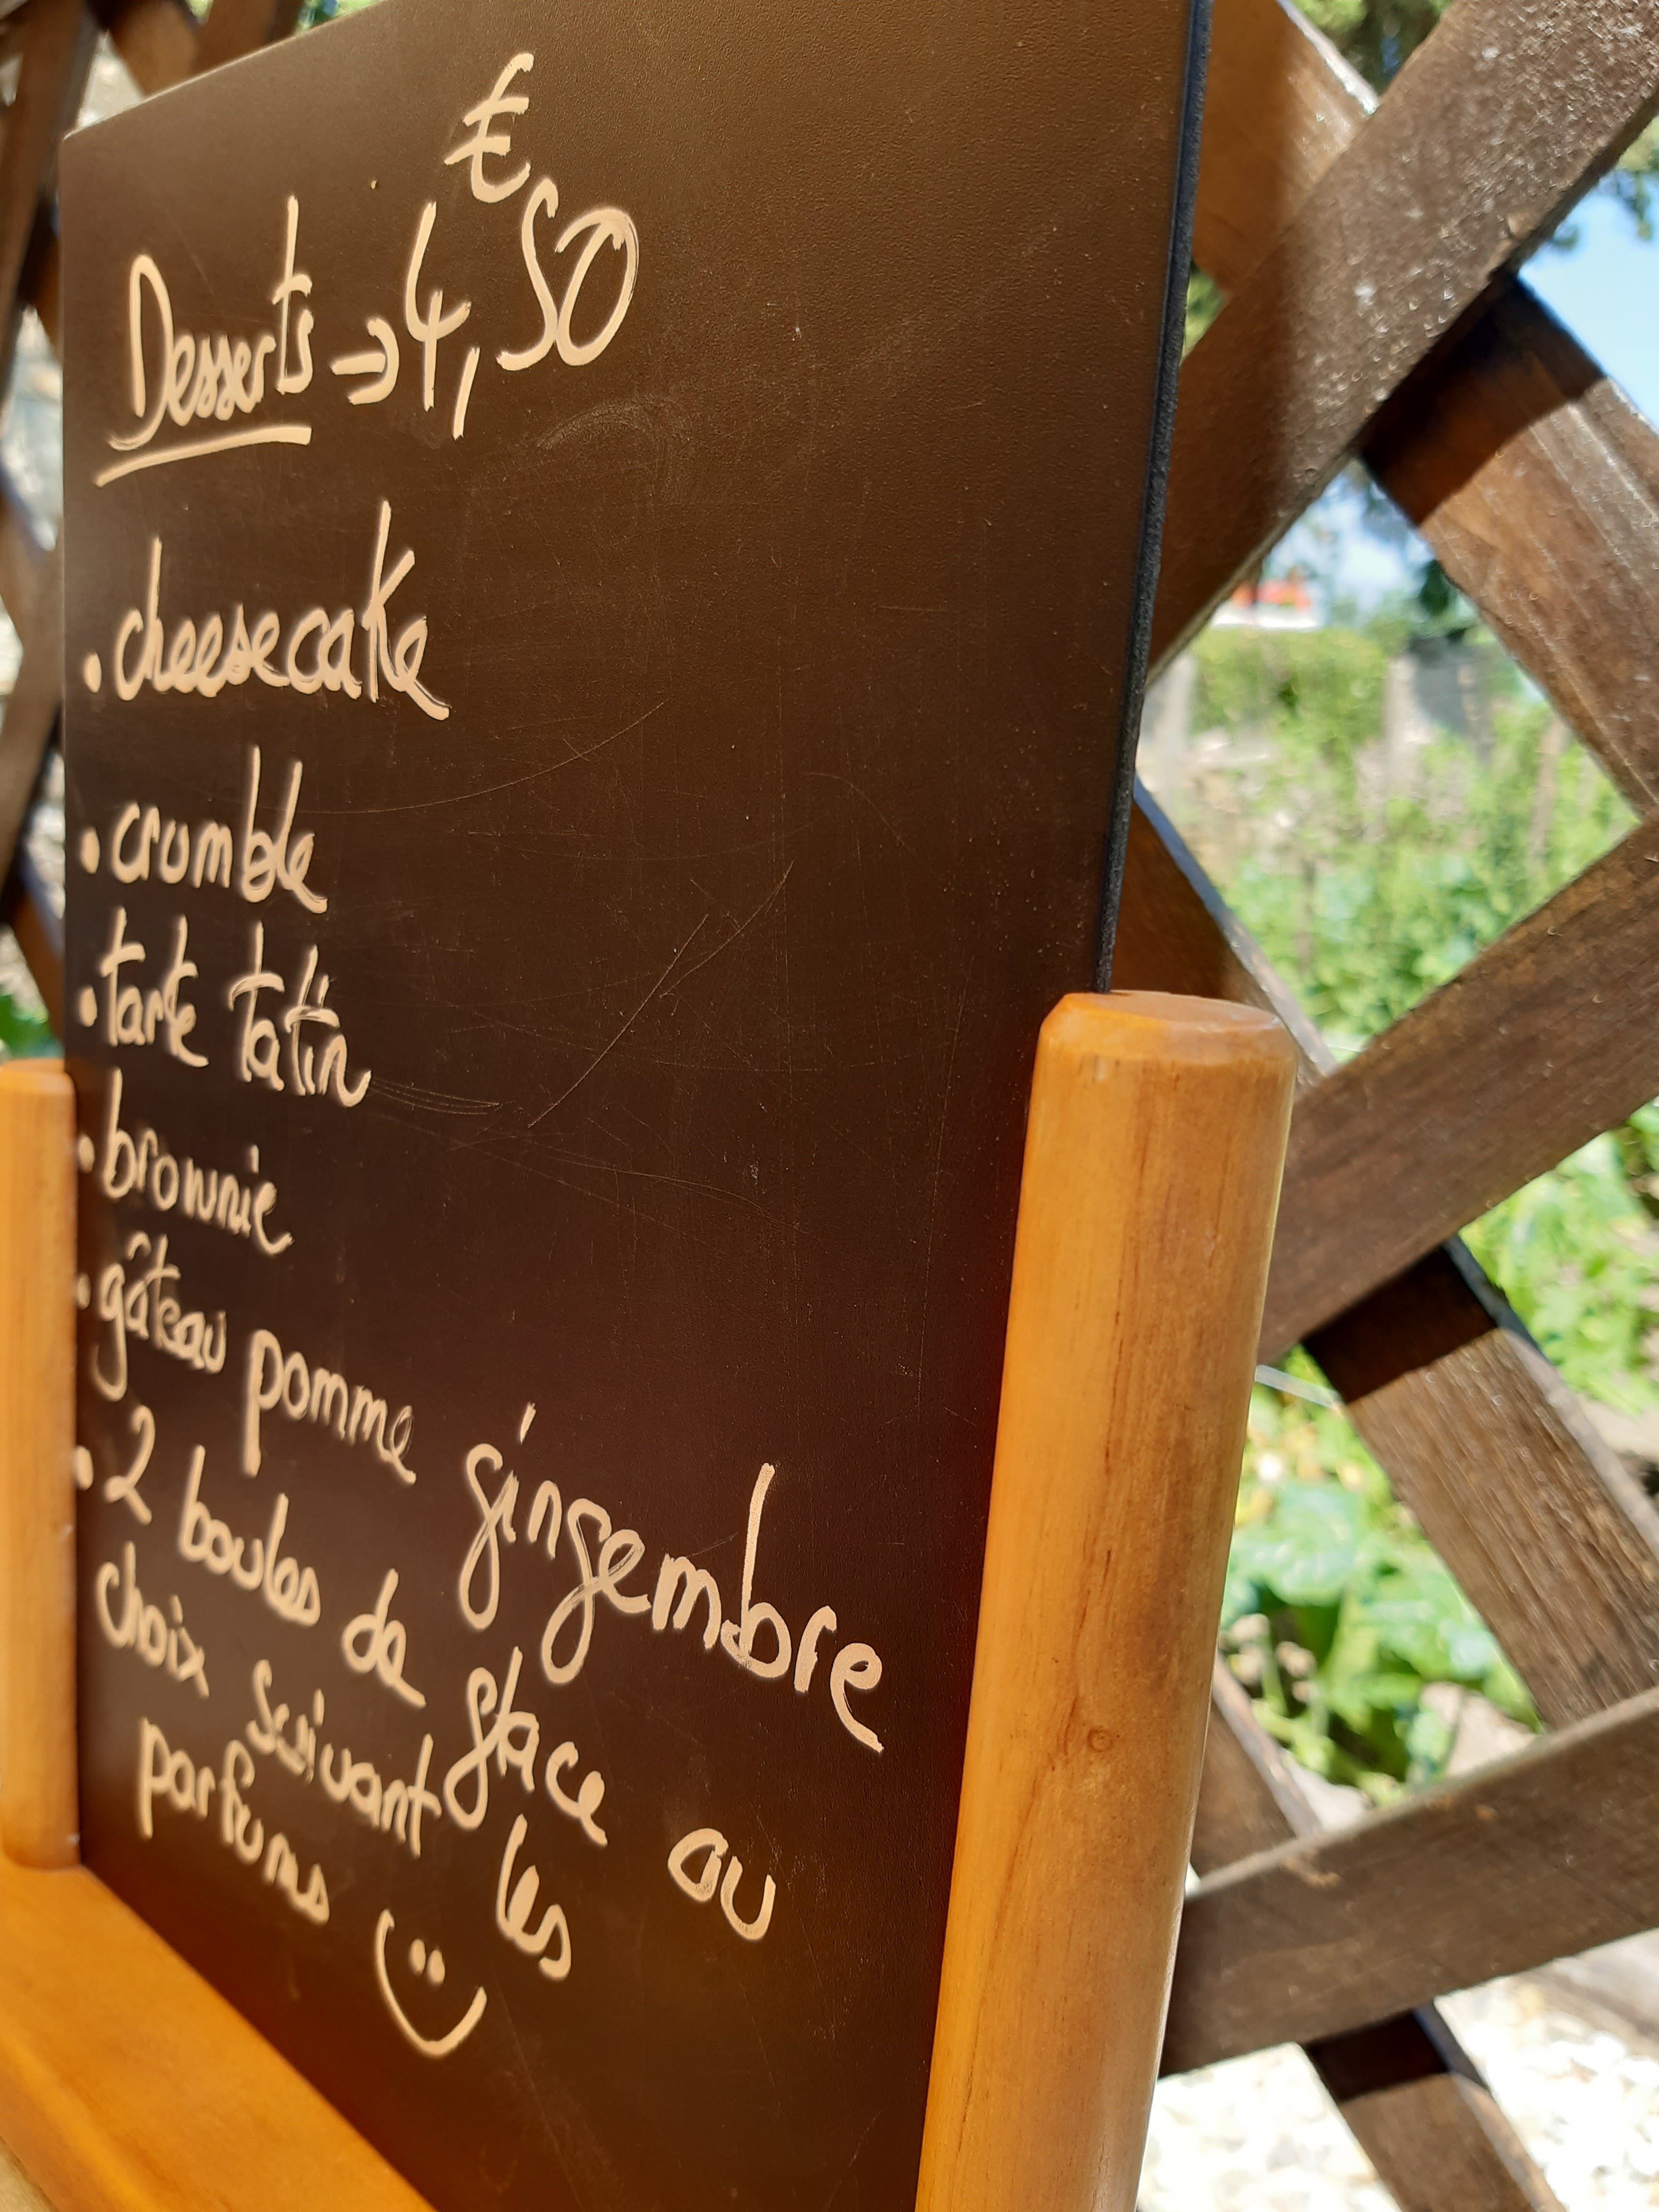 Desserts → 4,€50
. cheesecake
. crumble
. tarte Tatin
. brownie
. gâteau pomme gingembre
. 2 boules de glace au
choix suivant les
parfums